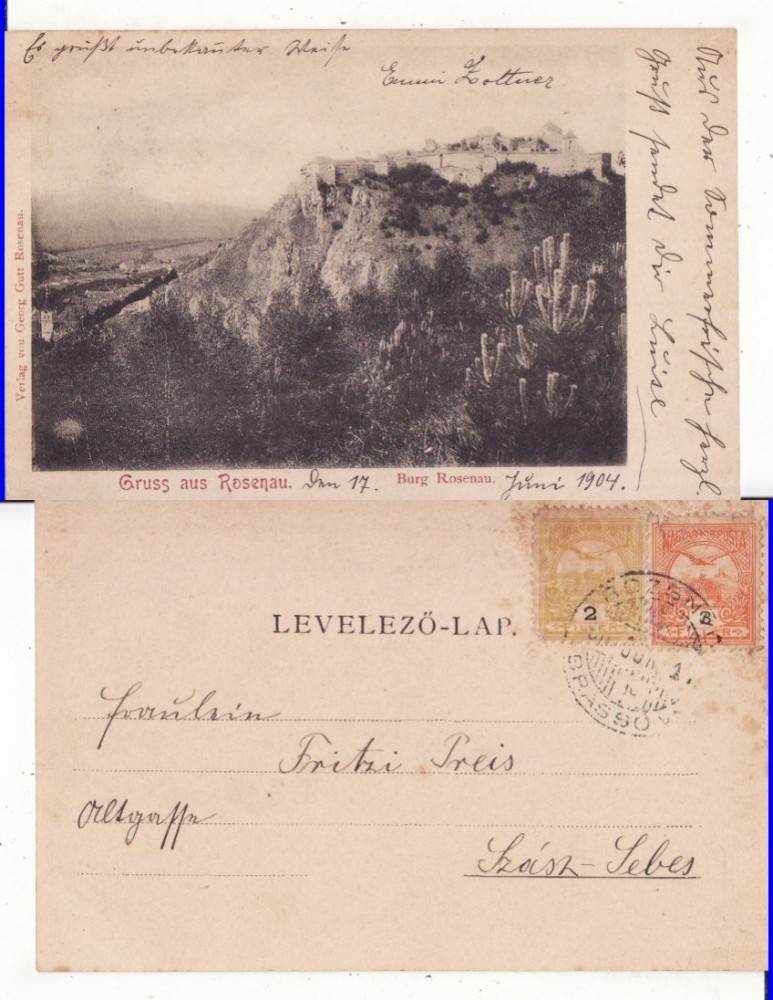 Es grüßt unbekannter Weise
Emmi Zoltner
Aus der Sommerfrische herzl.
Gruß sendet Dir Luise
Verlag von Georg Gutt Rosenau.
Gruss aus Rosenau. den 17. Burg Rosenau. Juni 1904.
MAGYAR KIR. POSTA
2
LEVELEZŐ-LAP.
BRASSÓ
Fräulein
Fritzi Preis
Altgasse
Szász-Sebes